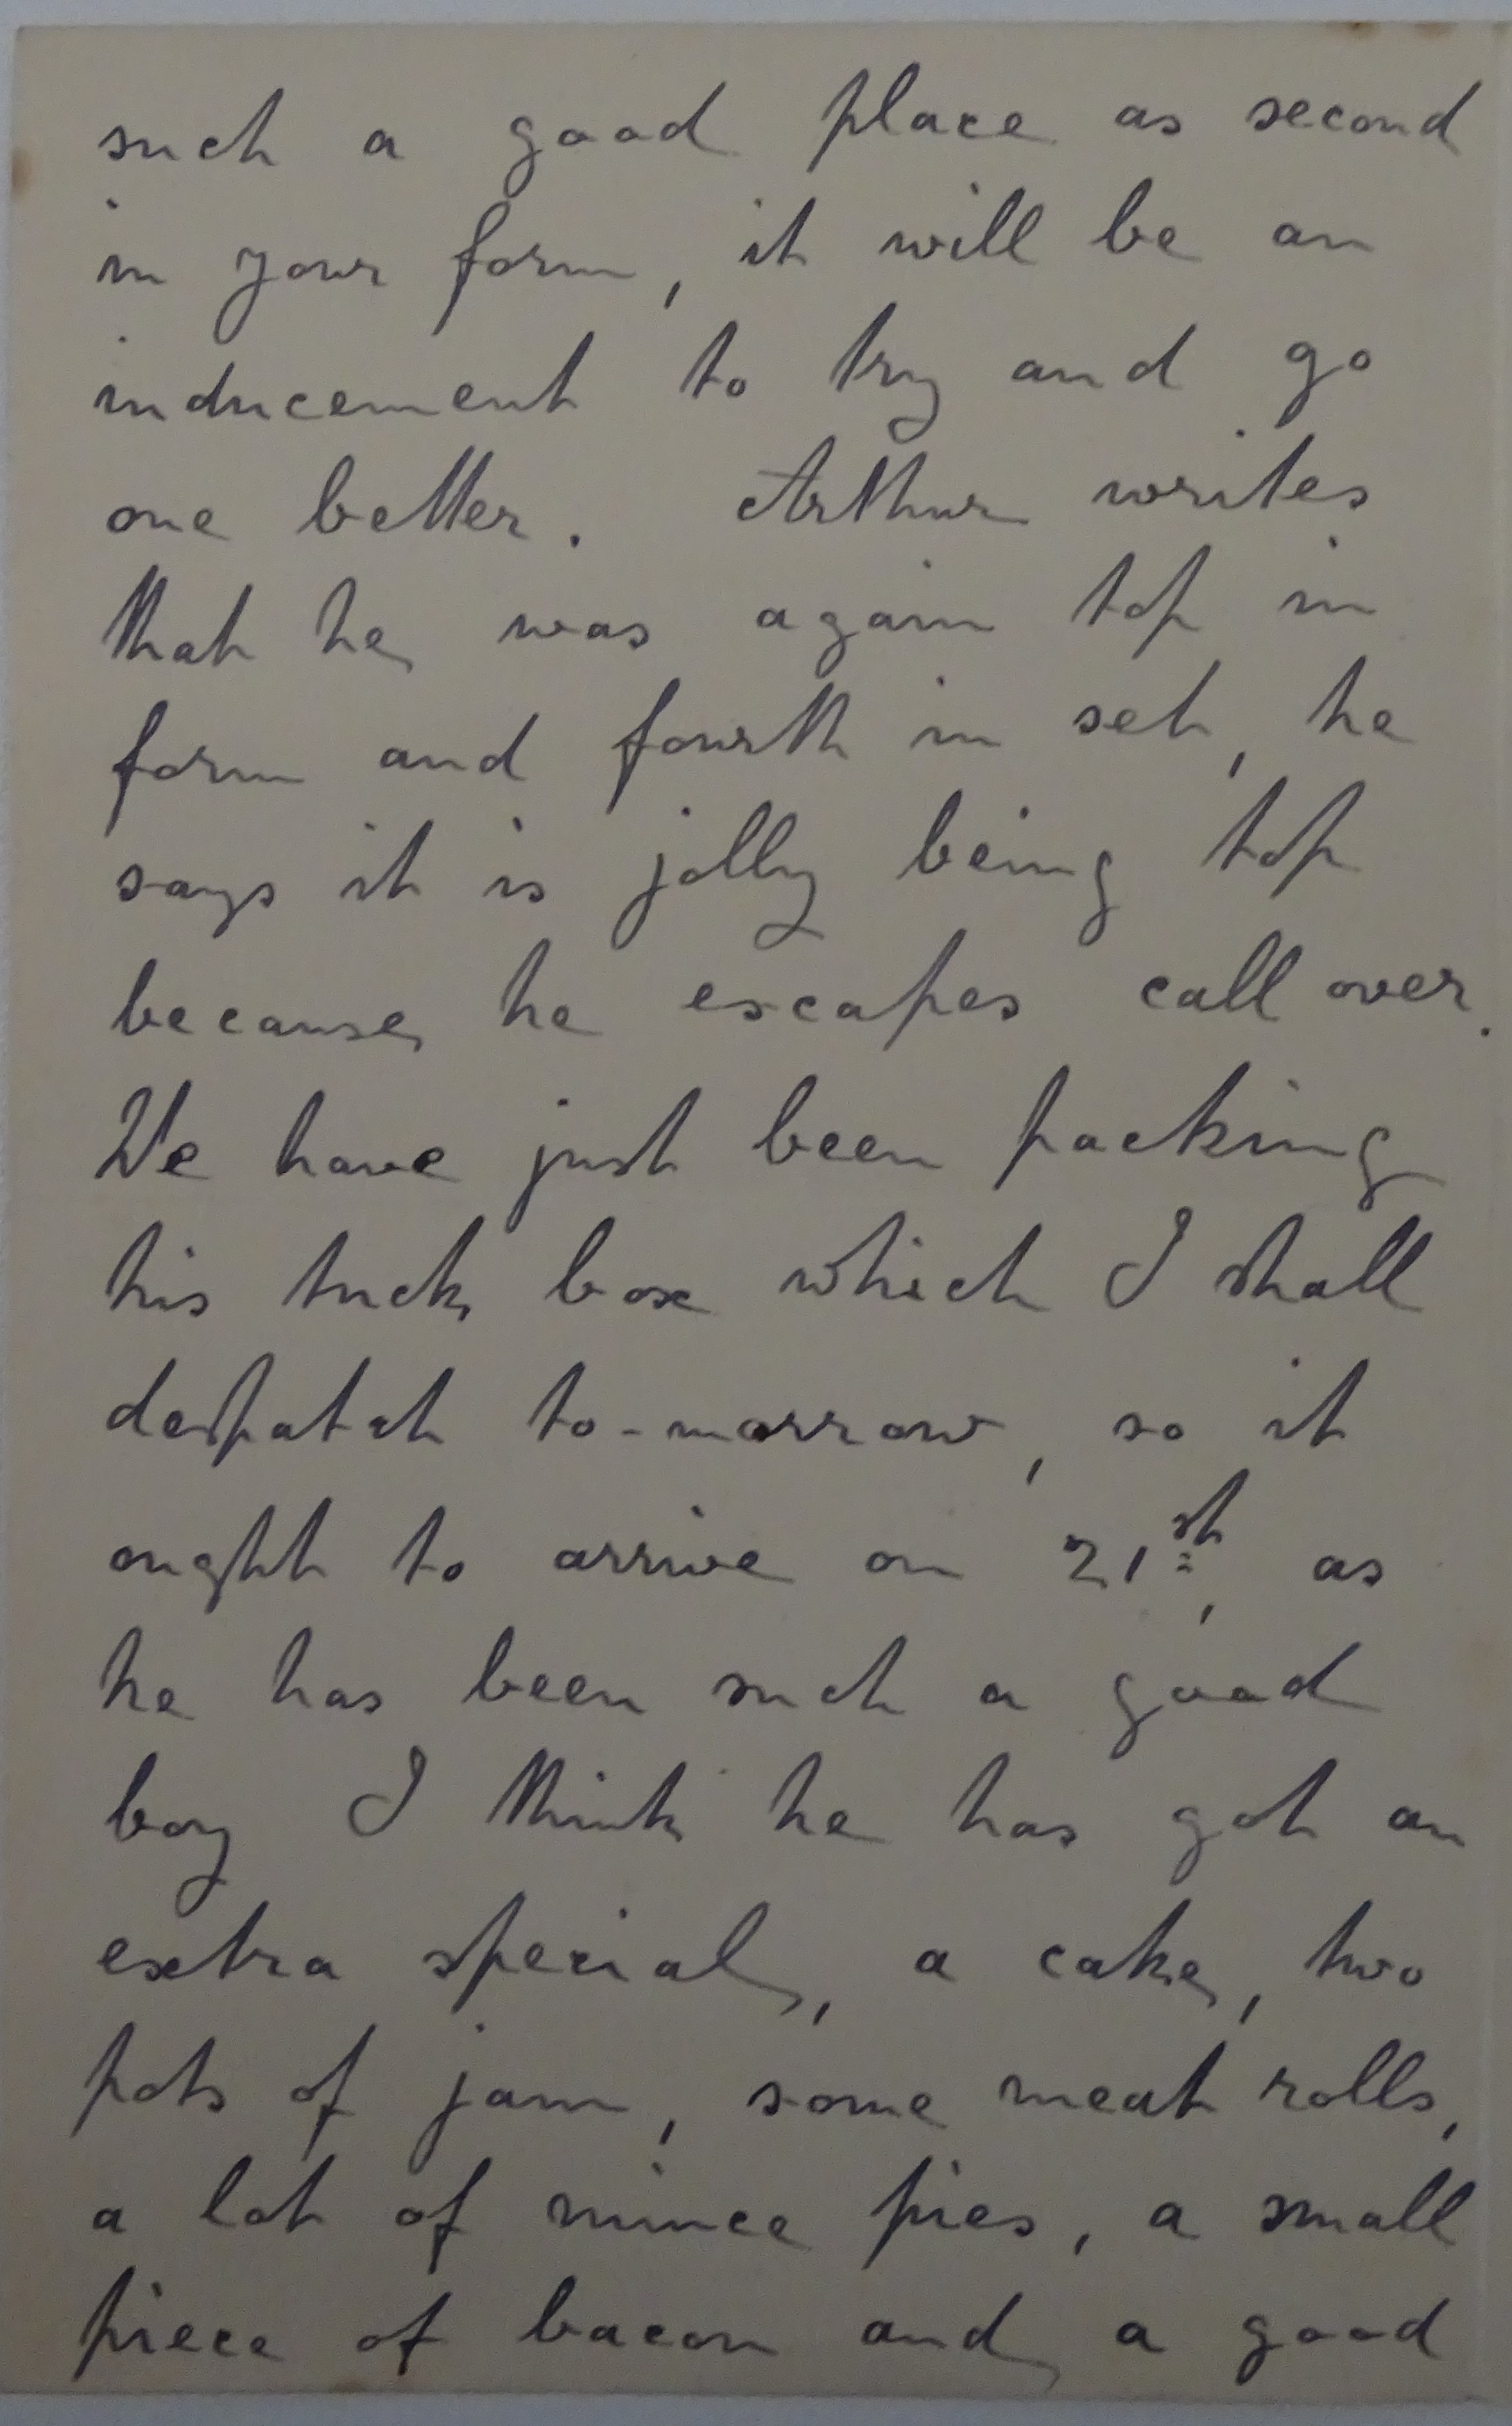 such a good place as second
in your form, it will be an
inducement to try and go
one better. Arthur writes
that he was again top in
form and fourth in set, he
says it is jolly being top
because he escapes call over.
We have just been packing
his tuck box which I shall
despatch to-morrow, so it
ought to arrive on 21st, as
he has been such a good
boy I think he has got an
extra special, a cake, two
pots of jam, some meat rolls,
a lot of mince pies, a small
piece of bacon and a good